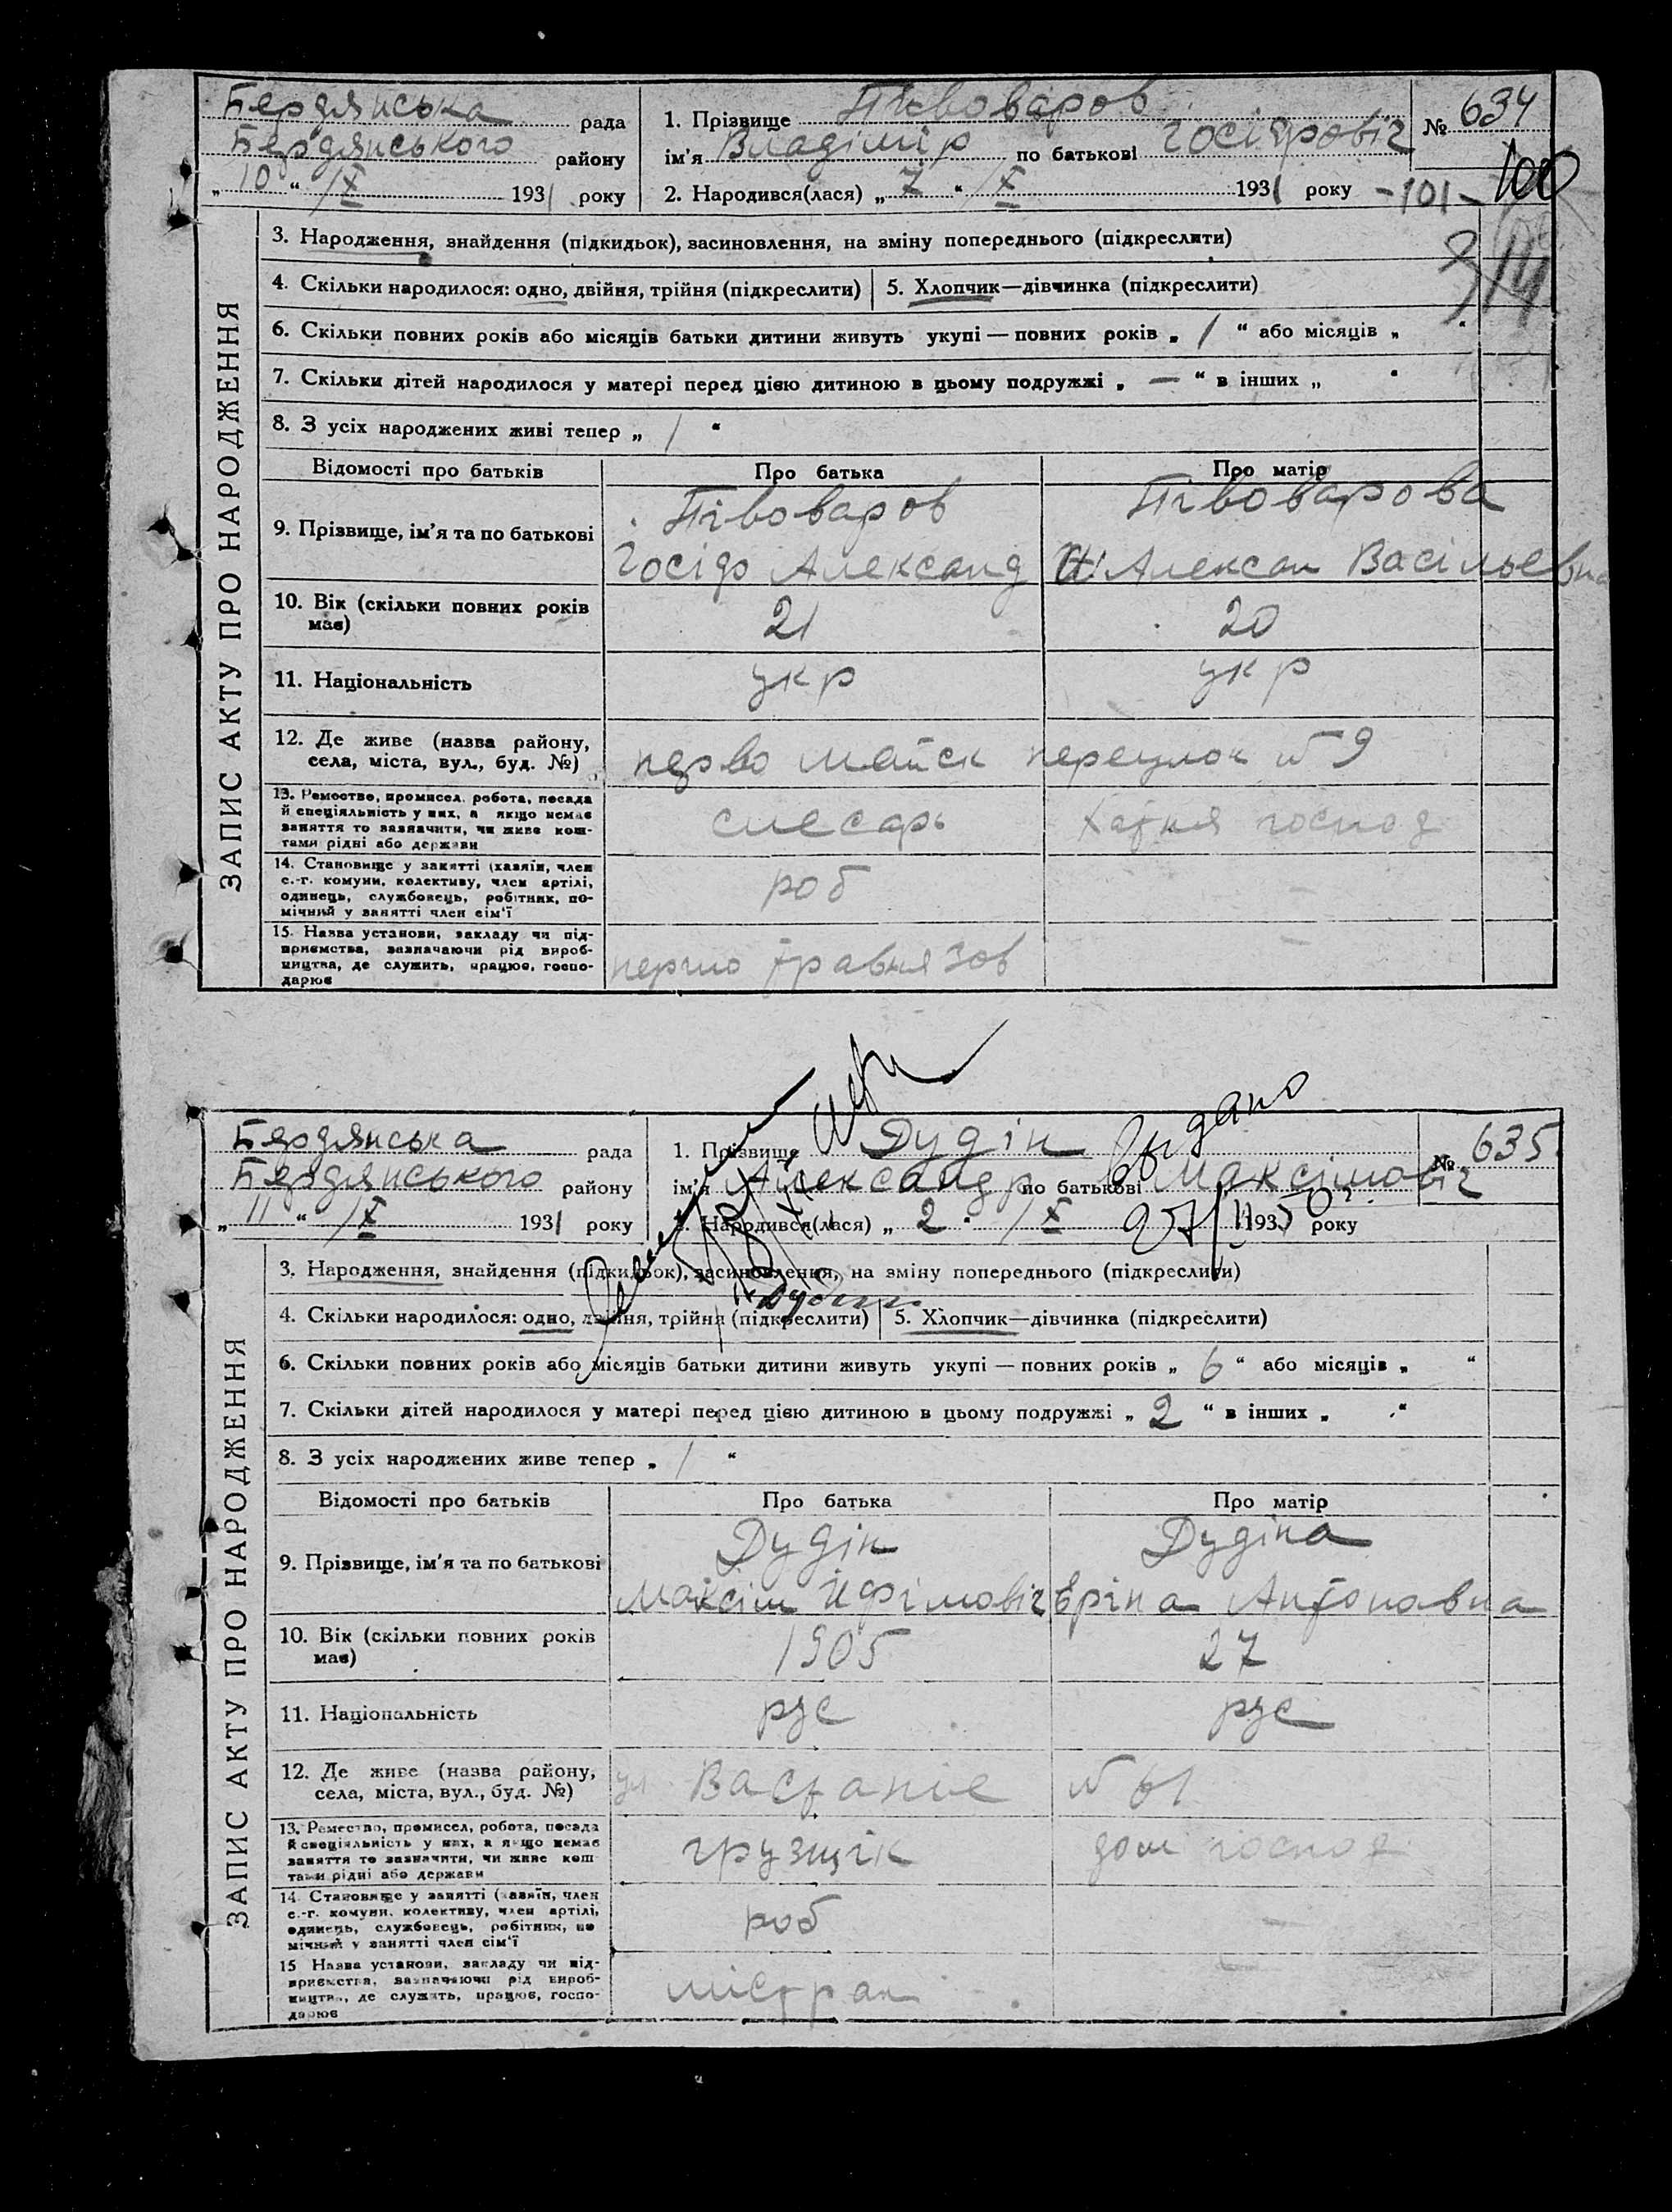 ЗАПИС АКТУ ПРО НАРОДЖЕННЯ
Бердянська рада
Бердянського району
„ 10 “ IX 1931 року
1. Прізвище Півоваров
ім'я Владімір по батькові Госіфовіч
№ 634
2. Народився(лася) „ 7 “ IX 1931 року
- 101 - 100
3. Народження, знайдення (підкидьок), засиновлення, на зміну попереднього (підкреслити)
4. Скільки народилося: одно, двійня, трійня (підкреслити)
5. Хлопчик—дівчинка (підкреслити)
6. Скільки повних років або місяців батьки дитини живуть укупі — повних років „ 1 “ або місяців „ “
7. Скільки дітей народилося у матері перед цією дитиною в цьому подружжі „ — “ в інших „ “
8. З усіх народжених живі тепер „ 1 “
Відомості про батьків Про батька Про матір
9. Прізвище, ім'я та по батькові
Півоваров
Госіф Александ
Півоварова
Алексан Васільевна
10. Вік (скільки повних років має) 21 20
11. Національність укр укр
12. Де живе (назва району, села, міста, вул., буд. №)
перво майск переулок № 9
13. Ремество, промисел, робота, посада й спеціяльність у них, а якщо немає заняття то зазначити, чи живе коштами рідні або держави
слесарь Хатня господ
14. Становище у занятті (хазяїн, член с.-г. комуни, колективу, член артілі, одинець, службовець, робітник, помічний у занятті член сім'ї
роб —
15. Назва установи, закладу чи підприємства, зазначаючи рід виробництва, де служить, працює, господарює
першо травня зов —
ЗАПИС АКТУ ПРО НАРОДЖЕННЯ
Бердянська рада
Бердянського району
„ 11 “ IX 1931 року
1. Прізвище Дудін
ім'я Александр по батькові Максімовіч
№ 635
Выдано
2. Народився(лася) „ 2 “ IX 193 року
3. Народження, знайдення (підкидьок), засиновлення, на зміну попереднього (підкреслити)
4. Скільки народилося: одно, двійня, трійня (підкреслити)
5. Хлопчик—дівчинка (підкреслити)
6. Скільки повних років або місяців батьки дитини живуть укупі — повних років „ 6 “ або місяців „ “
7. Скільки дітей народилося у матері перед цією дитиною в цьому подружжі „ 2 “ в інших „ “
8. З усіх народжених живе тепер „ 1 “
Відомості про батьків Про батька Про матір
9. Прізвище, ім'я та по батькові
Дудін
Максім Йфімовіч
Дудіна
Єріна Антоновна
10. Вік (скільки повних років має) 1905 27
11. Національність рус рус
12. Де живе (назва району, села, міста, вул., буд. №)
ул Востание № 61
13. Ремество, промисел, робота, посада й спеціяльність у них, а якщо немає заняття то зазначити, чи живе коштами рідні або держави
грузщік дом господ
14. Становище у занятті (хазяїн, член с.-г. комуни, колективу, член артілі, одинець, службовець, робітник, помічний у занятті член сім'ї
роб —
15 Назва установи, закладу чи підприємства, зазначаючи рід виробництва, де служить, працює, господарює
містран